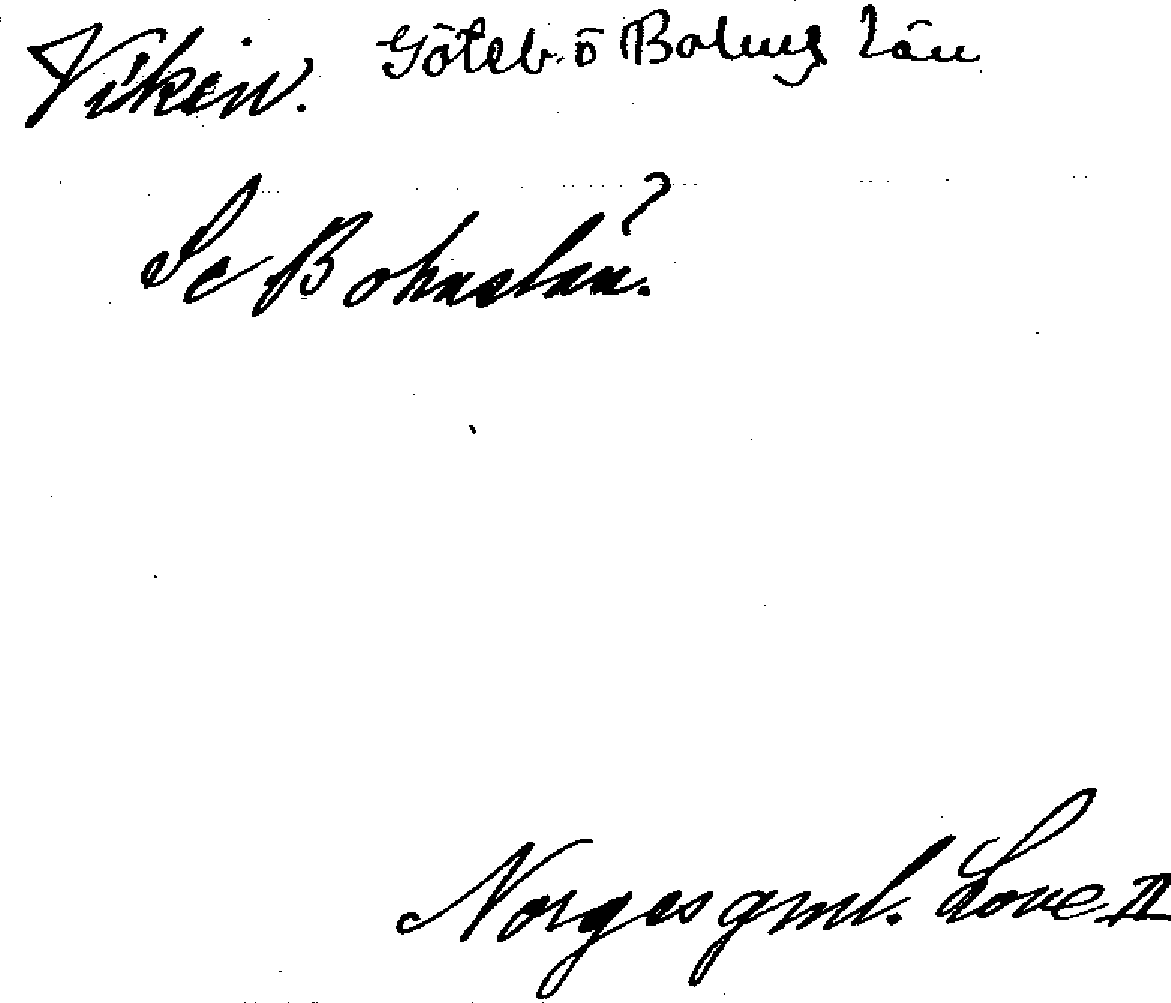 Viken. Göteb. o Bohus län
Se Bohuslän?
Norges gml. Love II